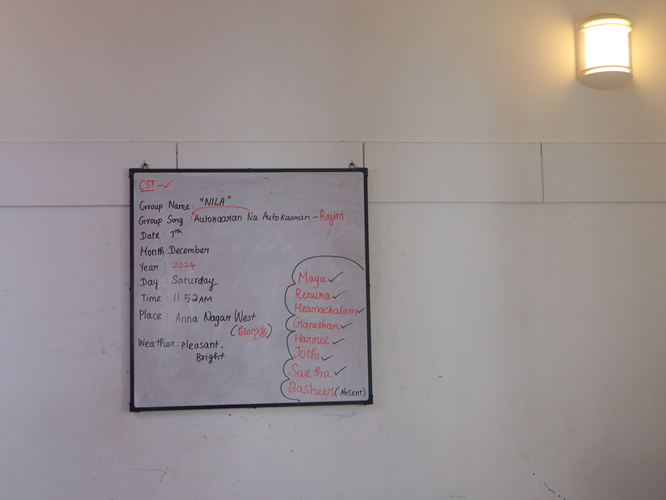 CST - ✓
Group Name: "NILA"
Group Song: Autokaaran Na Autokaaran - Rajini
Date : 7th
Month December
Year : 2024
Day : Saturday
Time : 11.52AM
Place : Anna Nagar West
Weather : Pleasant,
Bright
Maya ✓
Renuka ✓
Heamachalam ✓
Ganeshan ✓
Harinee ✓
Jothi ✓
Swetha ✓
Basheer (Absent)